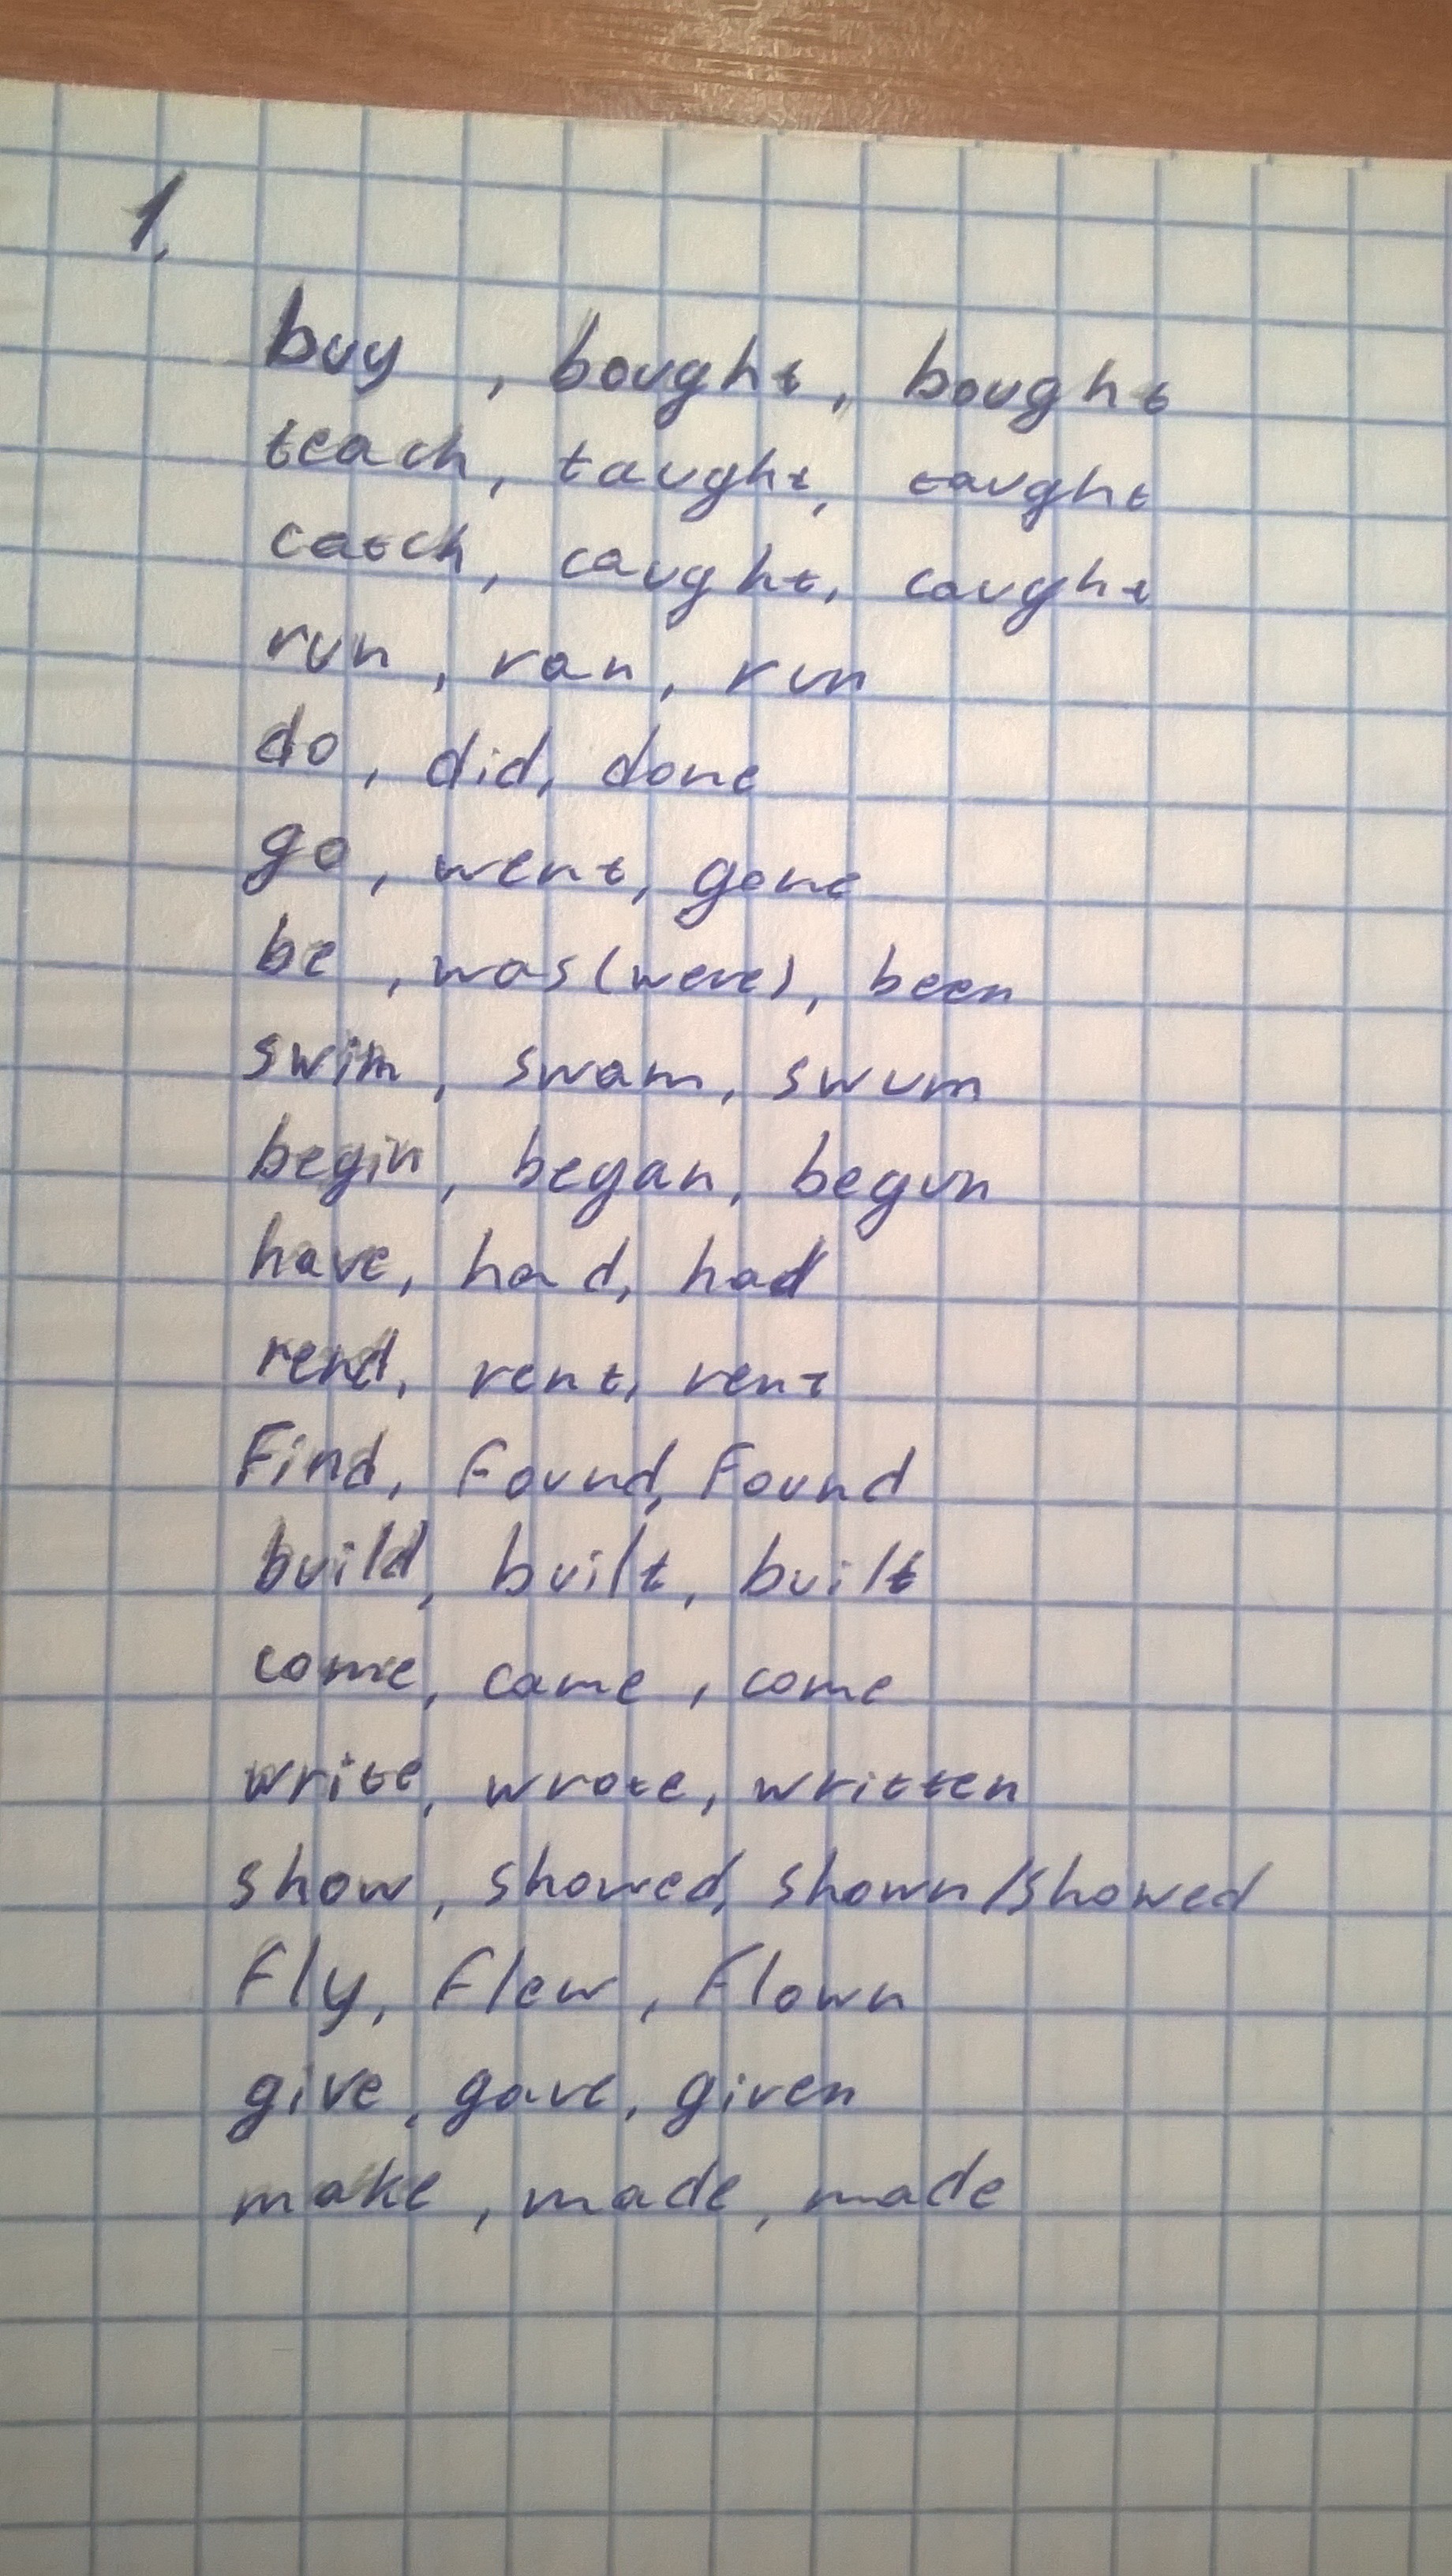 1.
buy, bought, bought
teach, taught, taught
catch, caught, caught
run, ran, run
do, did, done
go, went, gone
be, was(were), been
swim, swam, swum
begin, began, begun
have, had, had
rend, rent, rent
Find, Found, Found
build, built, built
come, came, come
write, wrote, written
show, showed, shown/showed
Fly, Flew, Flown
give, gave, given
make, made, made